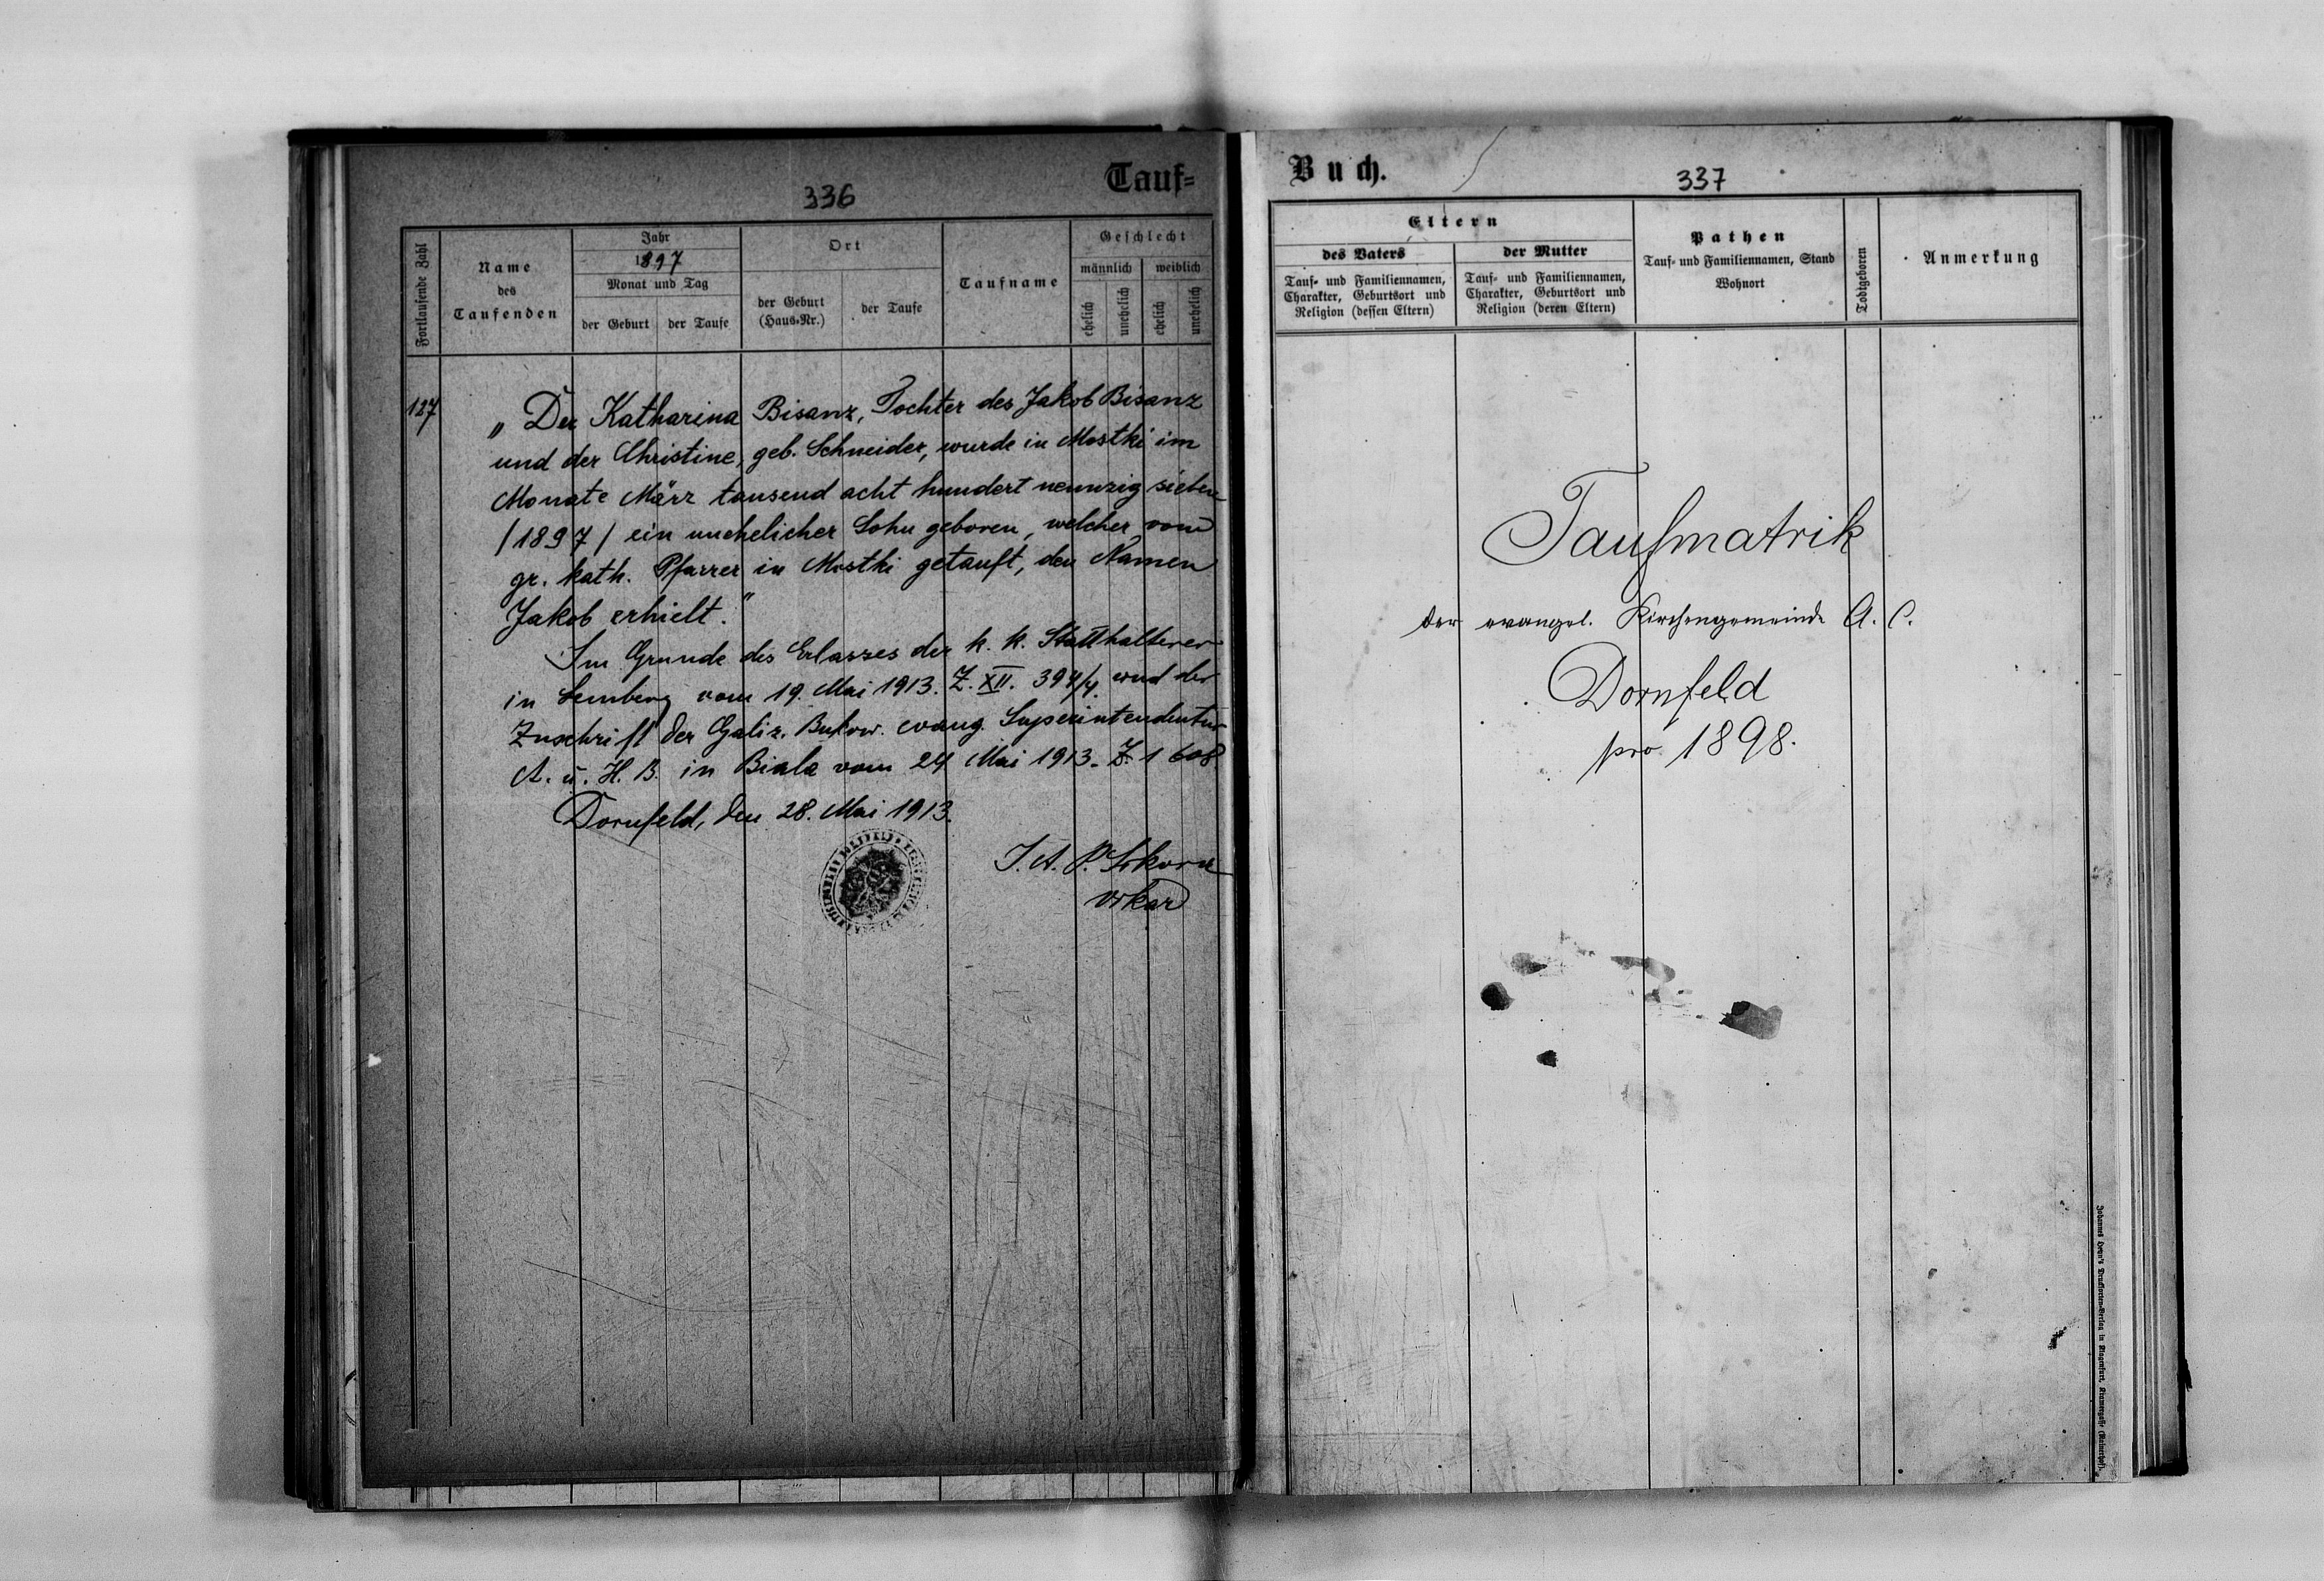 336
Tauf=
Fortlaufende Zahl
Name
des
Taufenden
Jahr
1897
Monat und Tag
der Geburt
der Taufe
Ort
der Geburt
(Haus-Nr.)
der Taufe
Taufname
Geschlecht
männlich
weiblich
ehelich
unehelich
ehelich
unehelich
127
„Der Katharina Bisanz, Tochter des Jakob Bisanz
und der Christine, geb. Schneider, wurde in Mostki im
Monate März tausend acht hundert neunzig sieben
/1897/ ein unehelicher Sohn geboren, welcher vom
gr. kath. Pfarrer in Mostki getauft, den Namen
Jakob erhielt."
Im Grunde des Erlasses der k. k. Statthalterei
in Lemberg vom 19. Mai 1913. Z. XII. 394/4. und der
Zuschrift der Galiz. Bukow. evang. Superintendentur
A. u. H. B. in Biala vom 24 Mai 1913. Z. 1608.
Dornfeld, den 28. Mai 1913.
I. A. P.
Vikar
Buch.
337
Eltern
des Vaters
Tauf- und Familiennamen,
Charakter, Geburtsort und
Religion (dessen Eltern)
der Mutter
Tauf- und Familiennamen,
Charakter, Geburtsort und
Religion (deren Eltern)
Pathen
Tauf- und Familiennamen, Stand
Wohnort
Todtgeboren
Anmerkung
Taufmatrik
der evangel. Kirchengemeinde A. C.
Dornfeld
pro 1898.